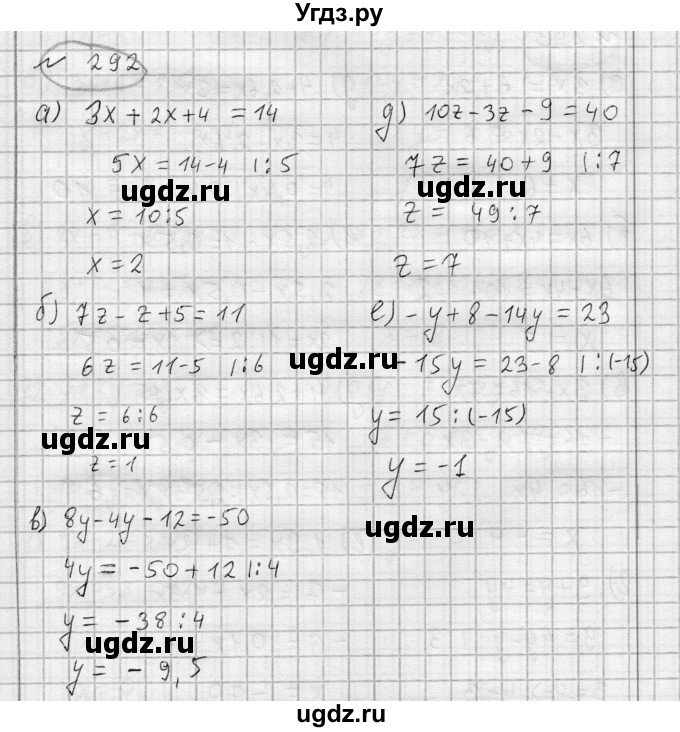 Угдз.ру
№ 292
а) 3x + 2x + 4 = 14
5x = 14 - 4 |:5
ugdz.ru
x = 10:5
x = 2
б) 7z - z + 5 = 11
6z = 11-5 |:6
ugdz.ru
z = 6:6
ugdz.ru
z = 1
в) 8y - 4y - 12 = -50
4y = -50 + 12 |:4
y = -38 : 4
ugdz.ru
y = - 9,5
д) 10z - 3z - 9 = 40
7z = 40 + 9 |:7
ugdz.ru
z = 49 : 7
z = 7
е) - y + 8 - 14y = 23
- 15y = 23 - 8 |:(-15)
y = 15 : (-15)
y = -1
ugdz.ru
ugdz.ru